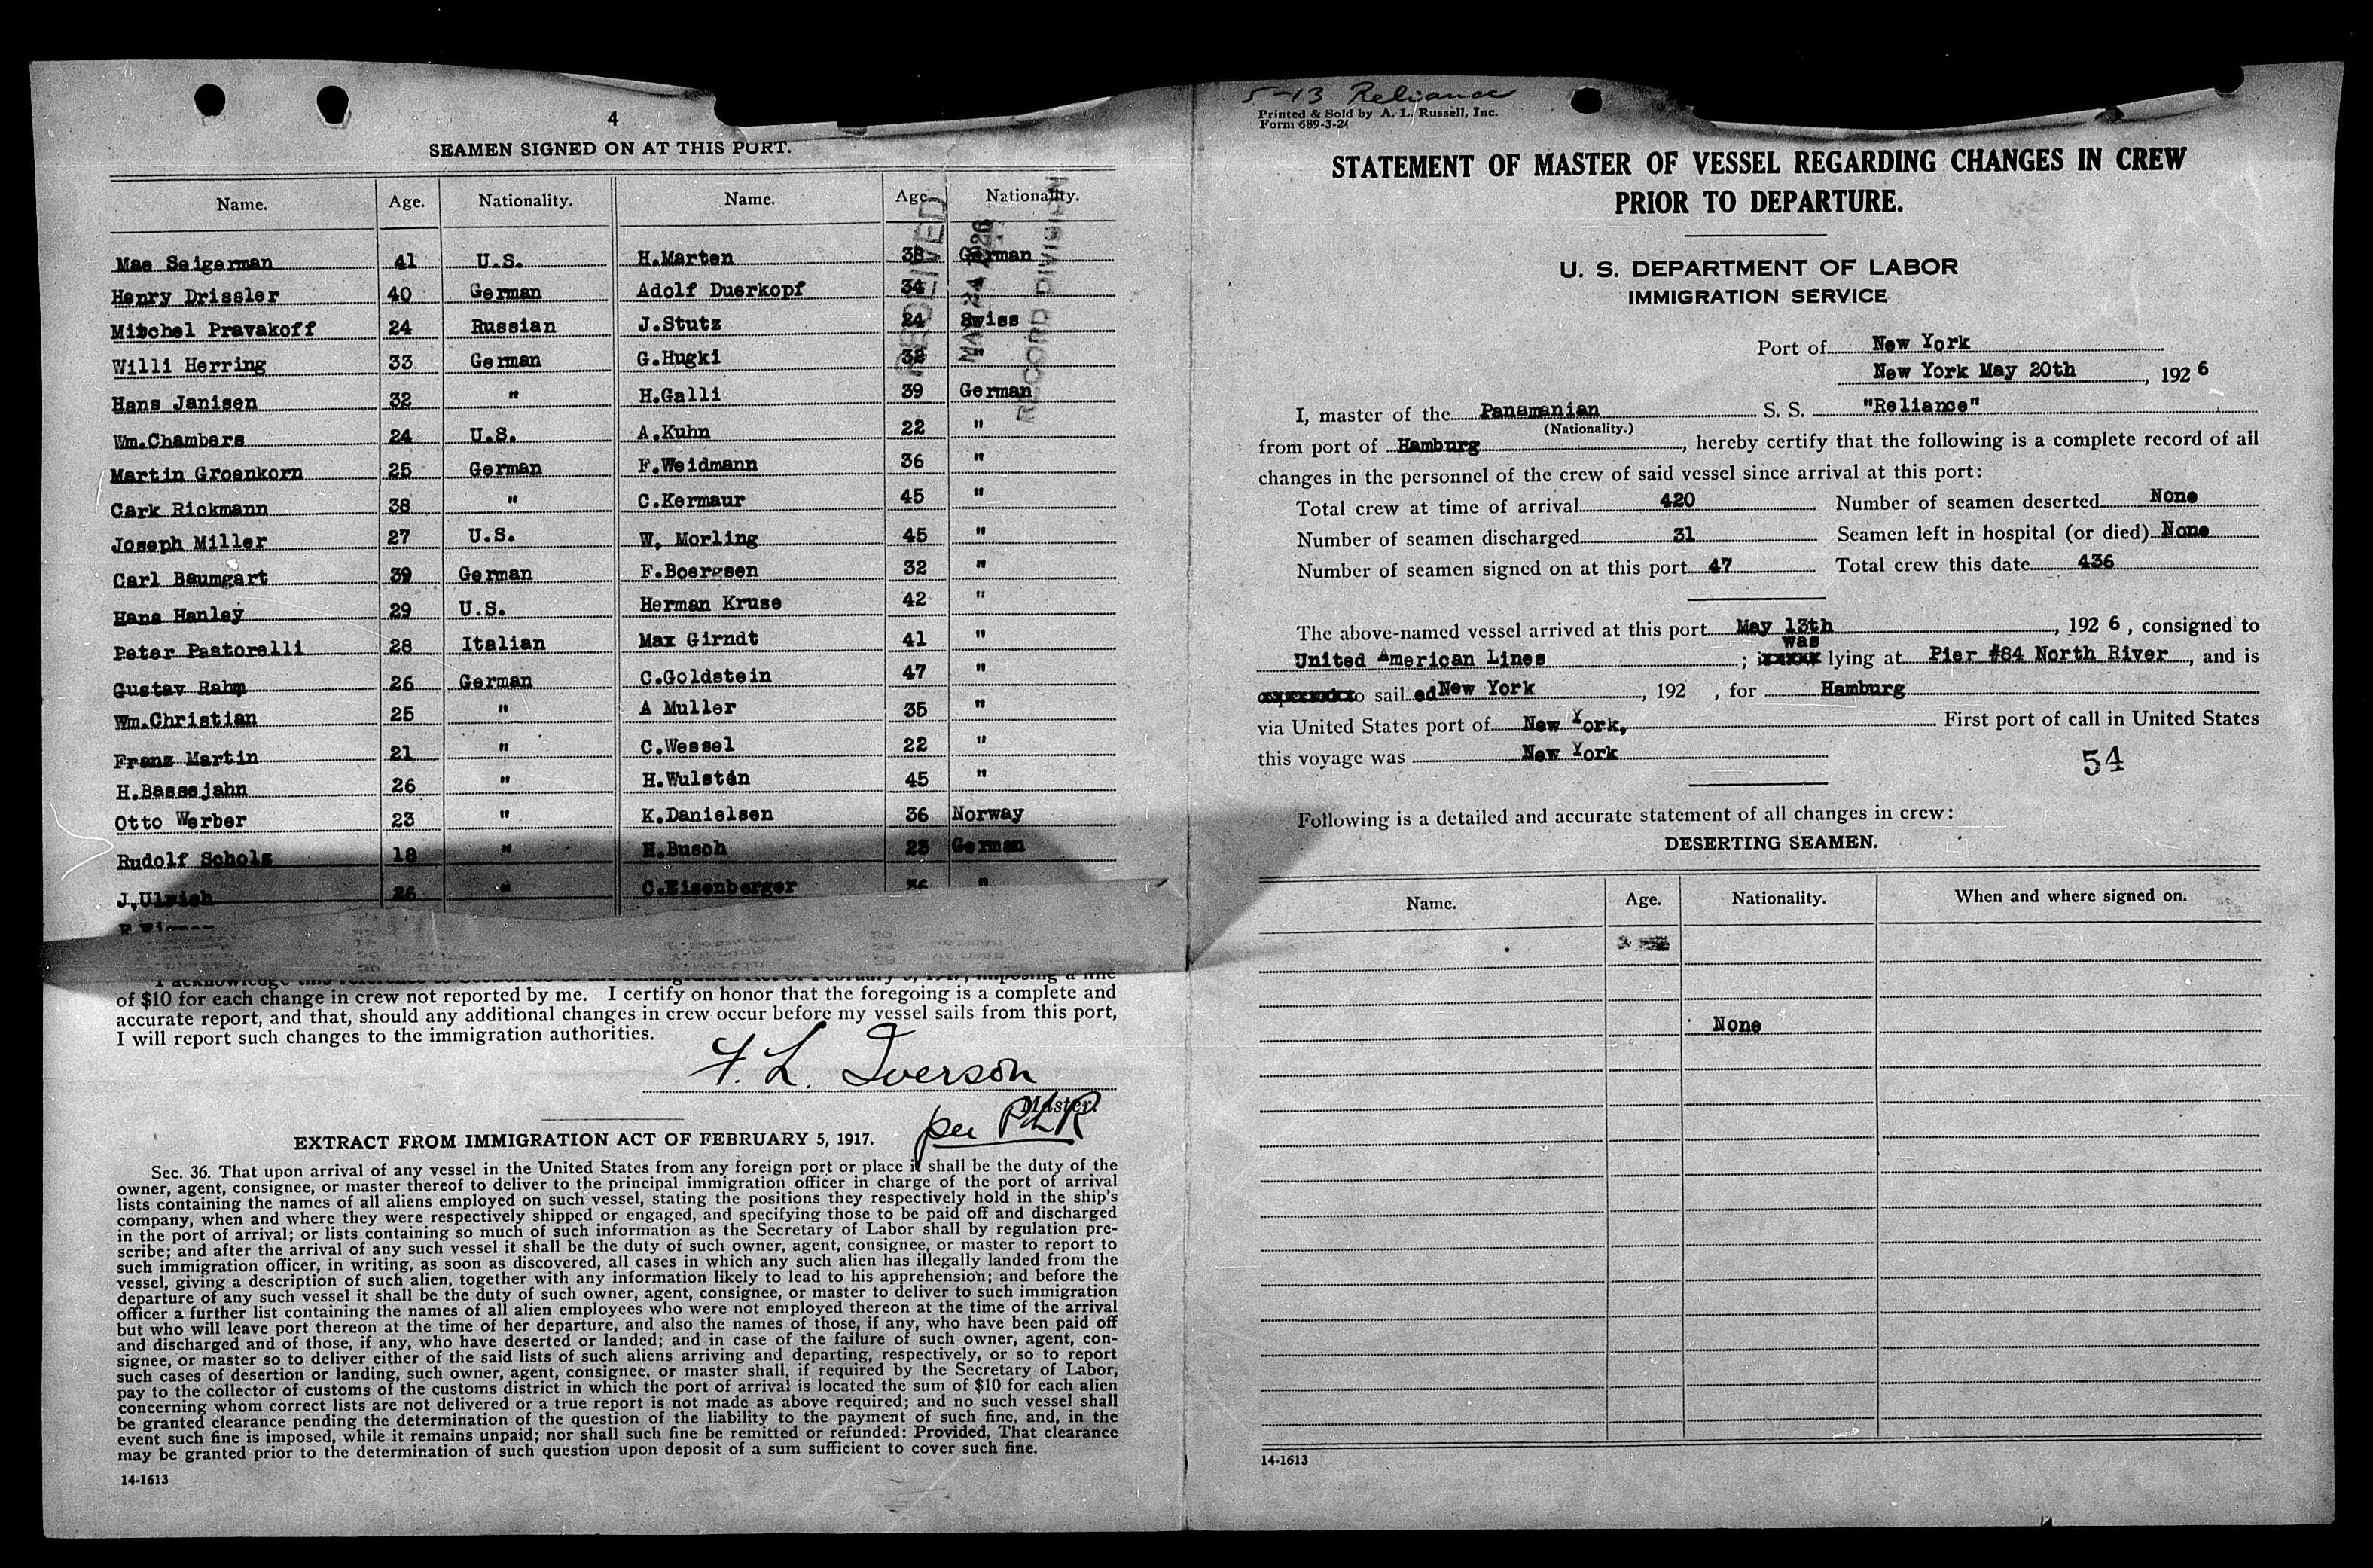 4
SEAMEN SIGNED ON AT THIS PORT.
Name. Age. Nationality. Name. Age. Nationality.
RECEIVED
MAY 24 1926
RECORD DIVISION
Mae Seigerman 41 U.S. H.Marten 38 German
Henry Drissler 40 German Adolf Duerkopf 34
Mitchel Pravakoff 24 Russian J.Stutz 24 Swiss
Willi Herring 33 German G.Hugki 32 "
Hans Janisen 32 " H.Galli 39 German
Wm.Chambers 24 U.S. A.Kuhn 22 "
Martin Groenkorn 25 German F.Weidmann 36 "
Cark Rickmann 38 " C.Kermaur 45 "
Joseph Miller 27 U.S. W. Morling 45 "
Carl Baumgart 39 German F.Boergsen 32 "
Hans Hanley 29 U.S. Herman Kruse 42 "
Peter Pastorelli 28 Italian Max Girndt 41 "
Gustav Rahm 26 German C.Goldstein 47 "
Wm.Christian 25 " A Muller 35 "
Franz Martin 21 " C.Wessel 22 "
H.Bassejahn 26 " H.Wulstén 45 "
Otto Werber 23 " K.Danielsen 36 Norway
Rudolf Scholz 18 " H.Busch 23 German
J.Ulrich 26 " C.Eisenberger 36 "
of $10 for each change in crew not reported by me. I certify on honor that the foregoing is a complete and
accurate report, and that, should any additional changes in crew occur before my vessel sails from this port,
I will report such changes to the immigration authorities.
F. L. Iverson
Master.
per PLR
EXTRACT FROM IMMIGRATION ACT OF FEBRUARY 5, 1917.
Sec. 36. That upon arrival of any vessel in the United States from any foreign port or place it shall be the duty of the
owner, agent, consignee, or master thereof to deliver to the principal immigration officer in charge of the port of arrival
lists containing the names of all aliens employed on such vessel, stating the positions they respectively hold in the ship's
company, when and where they were respectively shipped or engaged, and specifying those to be paid off and discharged
in the port of arrival; or lists containing so much of such information as the Secretary of Labor shall by regulation pre-
scribe; and after the arrival of any such vessel it shall be the duty of such owner, agent, consignee, or master to report to
such immigration officer, in writing, as soon as discovered, all cases in which any such alien has illegally landed from the
vessel, giving a description of such alien, together with any information likely to lead to his apprehension; and before the
departure of any such vessel it shall be the duty of such owner, agent, consignee, or master to deliver to such immigration
officer a further list containing the names of all alien employees who were not employed thereon at the time of the arrival
but who will leave port thereon at the time of her departure, and also the names of those, if any, who have been paid off
and discharged and of those, if any, who have deserted or landed; and in case of the failure of such owner, agent, con-
signee, or master so to deliver either of the said lists of such aliens arriving and departing, respectively, or so to report
such cases of desertion or landing, such owner, agent, consignee, or master shall, if required by the Secretary of Labor,
pay to the collector of customs of the customs district in which the port of arrival is located the sum of $10 for each alien
concerning whom correct lists are not delivered or a true report is not made as above required; and no such vessel shall
be granted clearance pending the determination of the question of the liability to the payment of such fine, and, in the
event such fine is imposed, while it remains unpaid; nor shall such fine be remitted or refunded: Provided, That clearance
may be granted prior to the determination of such question upon deposit of a sum sufficient to cover such fine.
14-1613
5-13 Reliance
Printed & Sold by A. L. Russell, Inc.
Form 689-3-24
STATEMENT OF MASTER OF VESSEL REGARDING CHANGES IN CREW
PRIOR TO DEPARTURE.
U. S. DEPARTMENT OF LABOR
IMMIGRATION SERVICE
Port of New York
New York May 20th, 1926
I, master of the Panamanian S. S. "Reliance"
(Nationality.)
from port of Hamburg, hereby certify that the following is a complete record of all
changes in the personnel of the crew of said vessel since arrival at this port:
Total crew at time of arrival 420 Number of seamen deserted None
Number of seamen discharged 31 Seamen left in hospital (or died) None
Number of seamen signed on at this port 47 Total crew this date 436
The above-named vessel arrived at this port May 13th, 1926, consigned to
United American Lines; was lying at Pier #84 North River, and is
sailed New York, 192 , for Hamburg
via United States port of New York, First port of call in United States
this voyage was New York
54
Following is a detailed and accurate statement of all changes in crew:
DESERTING SEAMEN.
Name. Age. Nationality. When and where signed on.
None
14-1613